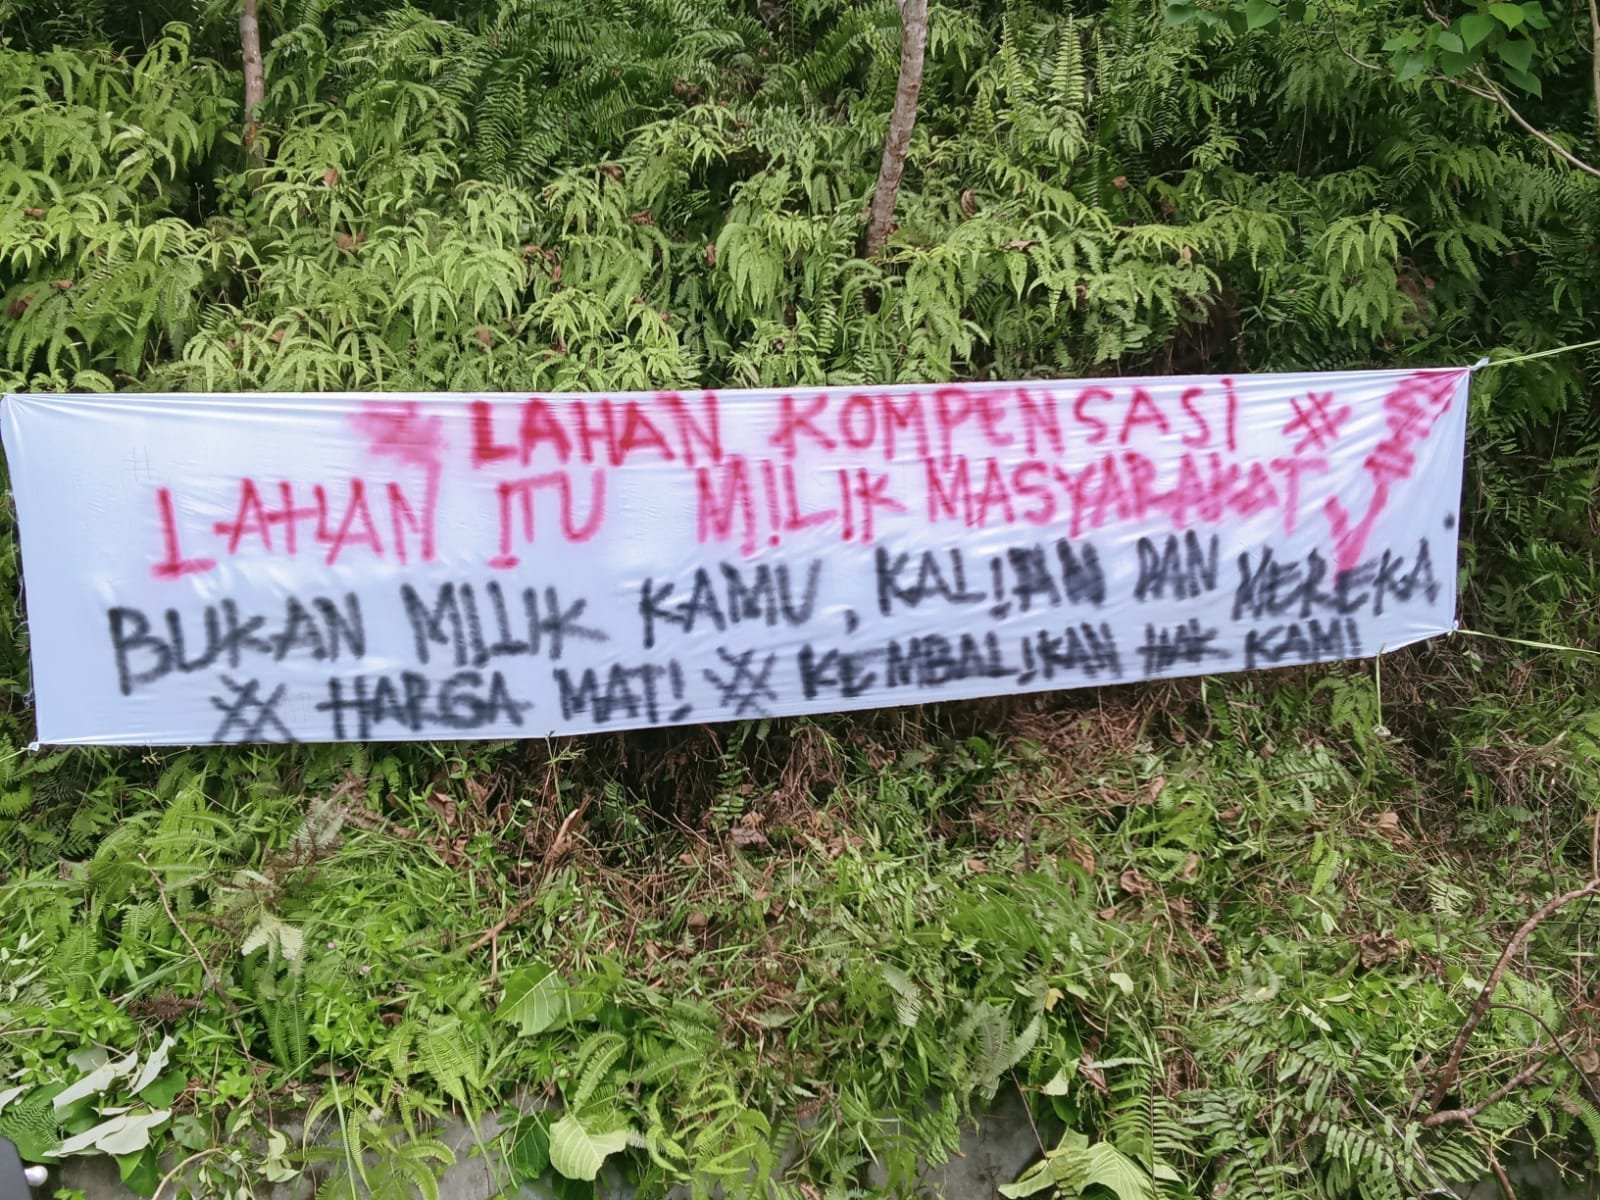 LAHAN KOMPENSASI
LAHAN ITU MILIK MASYARAKAT
BUKAN MILIK KAMU, KALIAN DAN MEREKA
XX HARGA MATI XX KEMBALIKAN HAK KAMI